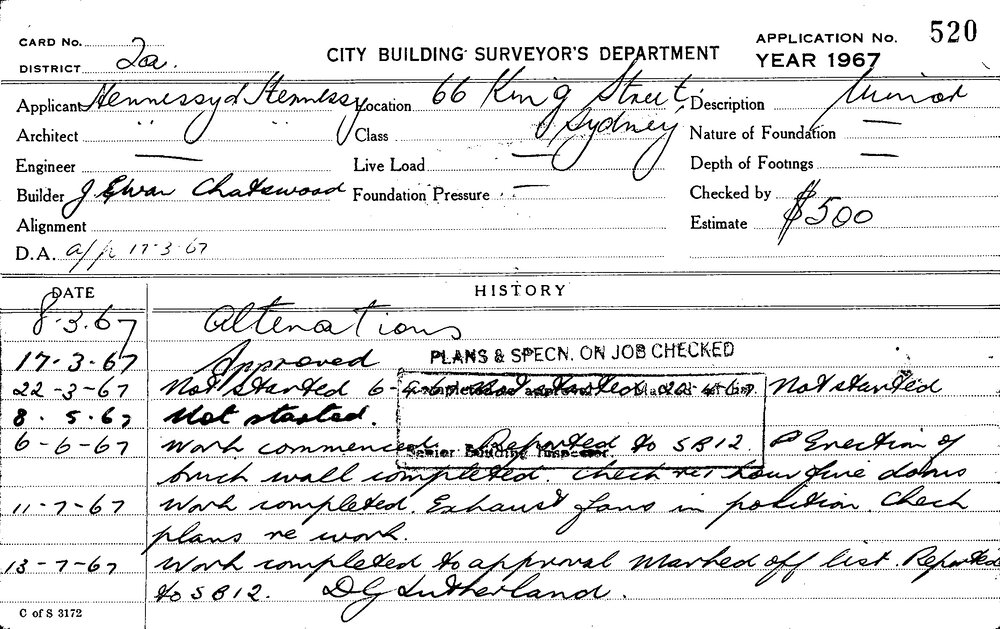 CARD No.
DISTRICT 2a.
CITY BUILDING SURVEYOR'S DEPARTMENT
APPLICATION No. 520
YEAR 1967
Applicant Hennessy & Hennessy Location 66 King Street, Sydney Description Minor
Architect " " Class Nature of Foundation —
Engineer — Live Load — Depth of Footings —
Builder J Ewan Chatswood Foundation Pressure — Checked by
Alignment Estimate $500
D.A. app 17-3-67
DATE HISTORY
8.3.67 Alterations
17-3-67 Approved PLANS & SPECN. ON JOB CHECKED
22-3-67 Not started 6-4-67 Not started Not started
8.5.67 Not started.
6-6-67 Work commenced. Reported to SB12. Erection of
Senior Building Inspector.
brick wall completed. Check re 1 hour fire doors
11-7-67 Work completed. Exhaust fans in position. Check
plans re work.
13-7-67 Work completed to approval Marked off list. Reported
to SB12. DG Sutherland.
C of S 3172